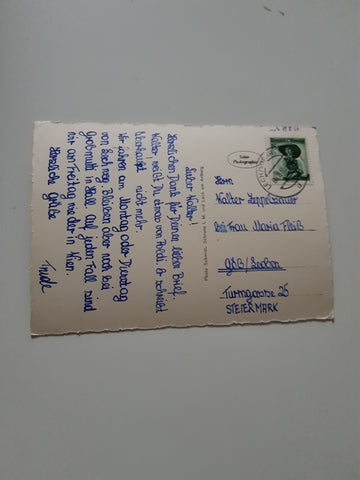 Lieber Walter!
Herzlichen Dank für Deinen lieben Brief.
Walter, weißt Du etwas von Heidi? Er schreibt
überhaupt nicht mehr.
Wir fahren am Montag oder Dienstag
von Lech weg. Bleiben aber noch bei
Großmutti in Hall auf jeden Fall sind
wir am Freitag wieder in Wien.
Herzliche Grüße
Trude
Photo Schmidt, Schruns i. M. und Lech am Arlberg
Echte
Photographie
Herrn
Walter
bei Frau Maria Fleiß
Göß/Leoben
Turmgasse 25
STEIERMARK